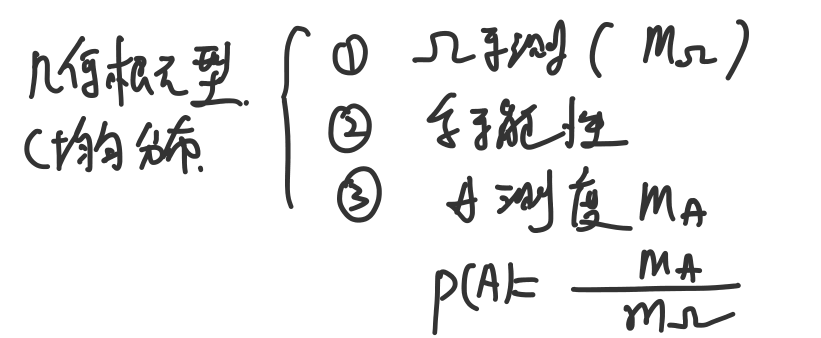 几何概型
(均匀分布.
① Ω可测 ( mΩ )
② 等可能性
③ A测度 mA
P(A)= mA / mΩ